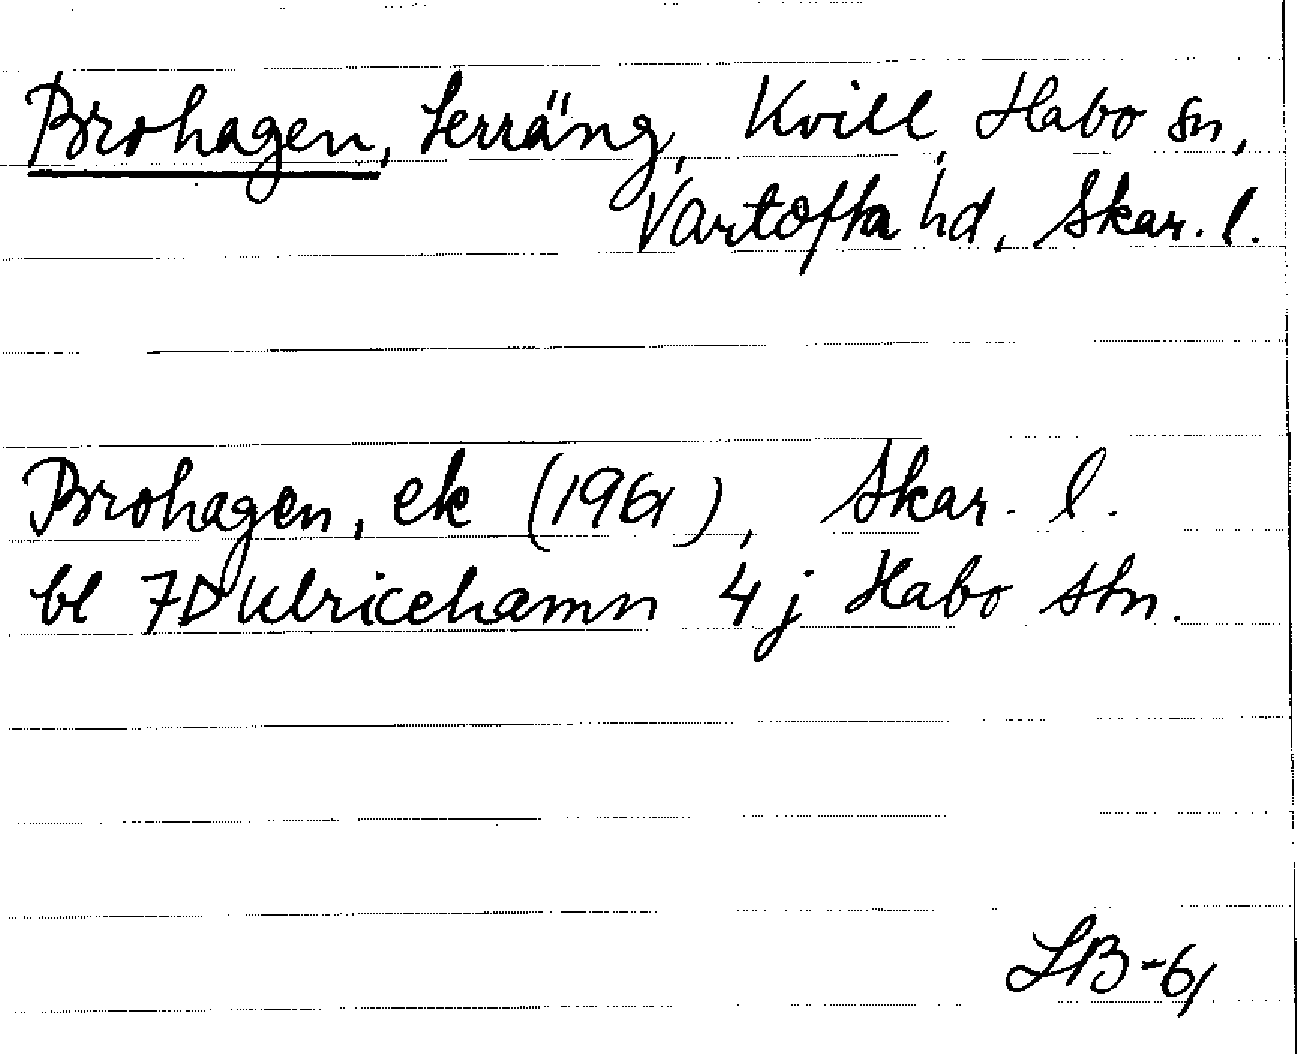 Brohagen, terräng, Kvill, Habo sn,
Vartofta hd, Skar. l.
Brohagen, ek (1961), Skar. l.
bl 7D Ulricehamn 4 j Habo stn.
SB-61